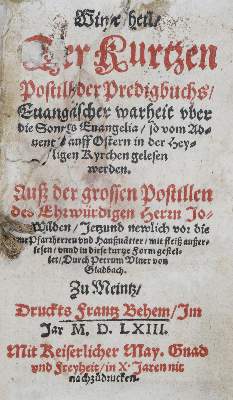 Winter heil/
Der Kurtzen
Postill/ der Predigbuchs/
Euangelischer warheit vber
die Sontags Euangelia/ so vom Ad-
uent auff Ostern in der Hey-
ligen Kyrchen gelesen
werden.
Auß der grossen Postillen
des Ehrwürdigen Herrn Jo-
Wilden/ Jetzund newlich vor die
Pfarherren vnd Haußuätter/ mit fleiß außer-
lesen/ vnnd in diese kurtze Form gestel-
let/ Durch Petrum Vlner von
Gladbach.
Zu Meintz/
Druckts Frantz Behem/ Im
Jar M. D. LXIII.
Mit Keiserlicher May. Gnad
vnd Freyheit/ in X. Jaren nit
nachzůdrucken.